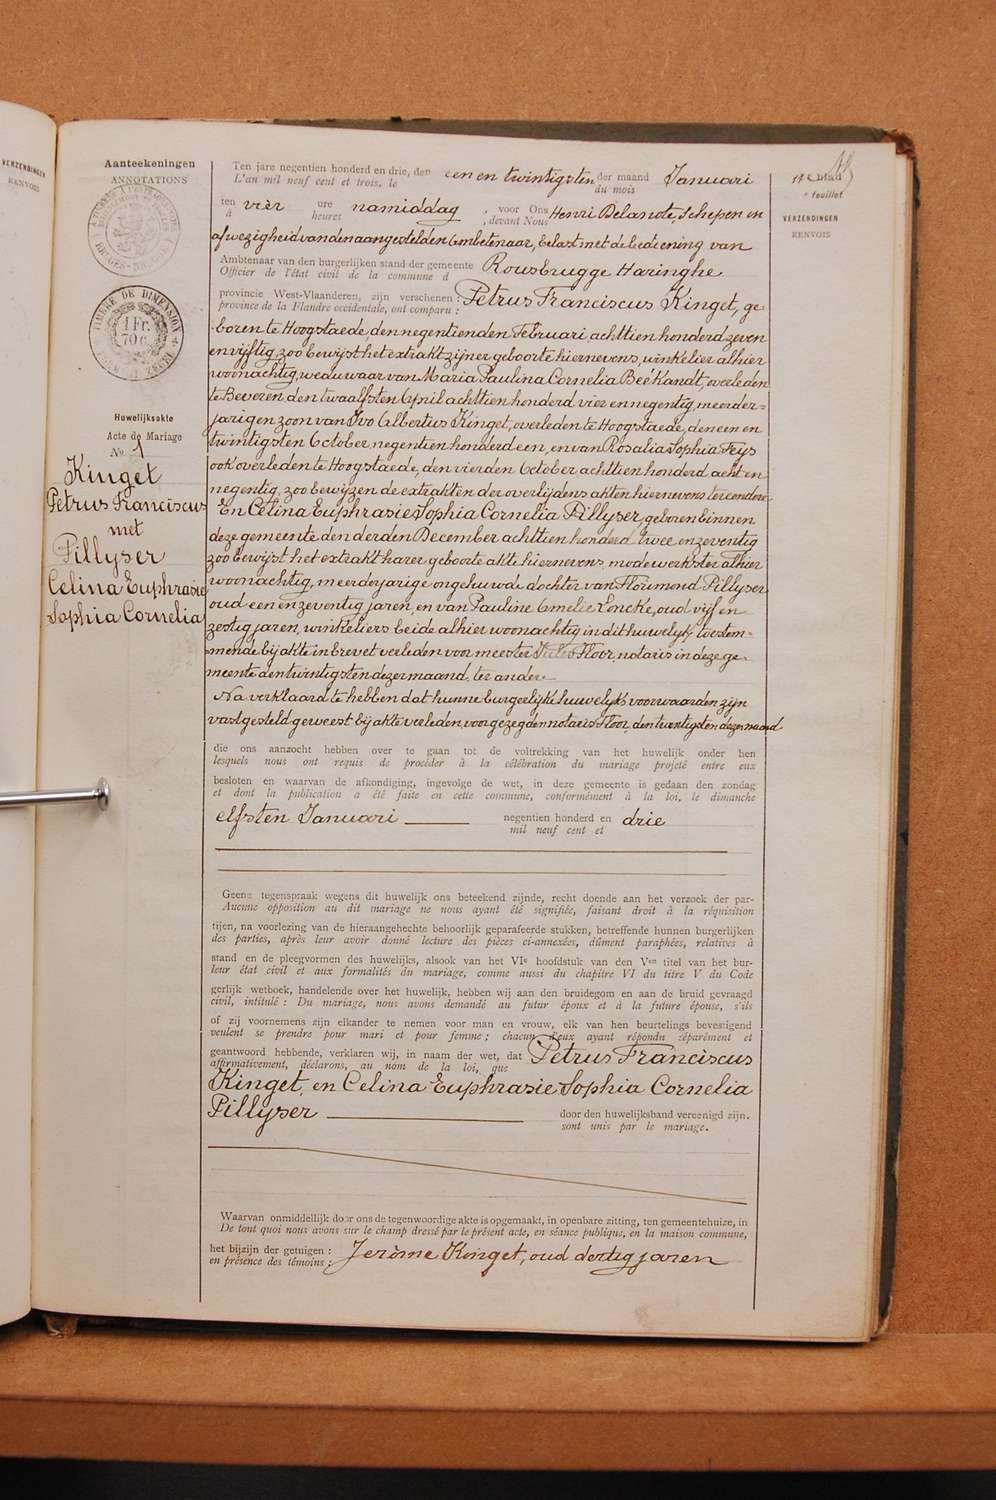 VERZENDINGEN
RENVOIS
Aanteekeningen
ANNOTATIONS
TIMBRE DE DIMENSION
1 Fr.
70 c.
Huwelijksakte
Acte de Mariage
No 1
Kinget
Petrus Franciscus
met
Pillyser
Celina Euphrasie
Sophia Cornelia
Ten jare negentien honderd en drie, den een en twintigsten der maand Januari
L'an mil neuf cent et trois, le du mois
ten vier ure namiddag, voor Ons Henri Delanote Schepen in
à heures , devant Nous
afwezigheid van den aangestelden Ambtenaar, belast met de bediening van
Ambtenaar van den burgerlijken stand der gemeente Rousbrugge Haringhe
Officier de l'état civil de la commune d
provincie West-Vlaanderen, zijn verschenen : Petrus Franciscus Kinget, ge-
province de la Flandre occidentale, ont comparu :
boren te Hoogstaede, den negentienden Februari achttien honderd zeven
en vijftig, zoo bewijst het extrakt zijner geboorte hiernevens, winkelier alhier
woonachtig, weduwaar van Maria Paulina Cornelia Beékandt, overleden
te Beveren den twaalfsten April achttien honderd vier en negentig, meerder-
jarigen zoon van Ivo Albertus Kinget, overleden te Hoogstaede, den een en
twintigsten October, negentien honderd een, en van Rosalia Sophia Feys
ook overleden te Hoogstaede, den vierden October achttien honderd acht en
negentig, zoo bewijzen de extrakten der overlijdens akten hiernevens ter eendere
En Celina Euphrasie Sophia Cornelia Pillyser, geboren binnen
deze gemeente den derden December achttien honderd twee en zeventig
zoo bewijst het extrakt harer geboorte akte hiernevens, modewerkster alhier
woonachtig, meerderjarige ongehuwde dochter van Florimond Pillyser
oud een en zeventig jaren, en van Pauline Amelie Loncke, oud vijf en
zestig jaren, winkeliers beide alhier woonachtig in dit huwelijk toestem-
mende bij akte in brevet verleden voor meester Jules Floor, notaris in deze ge-
meente den twintigsten dezer maand, ter andere
Na verklaard te hebben dat hunne burgerlijke huwelijks voorwaarden zijn
vastgesteld geweest bij akte verleden voor gezegden notaris Floor, den twintigsten dezer maand
die ons aanzocht hebben over te gaan tot de voltrekking van het huwelijk onder hen
lesquels nous ont requis de procéder à la célébration du mariage projeté entre eux
besloten en waarvan de afkondiging, ingevolge de wet, in deze gemeente is gedaan den zondag
et dont la publication a été faite en cette commune, conformément à la loi, le dimanche
elfsten Januari negentien honderd en drie
mil neuf cent et
Geene tegenspraak wegens dit huwelijk ons beteekend zijnde, recht doende aan het verzoek der par-
Aucune opposition au dit mariage ne nous ayant été signifiée, faisant droit à la réquisition
tijen, na voorlezing van de hieraangehechte behoorlijk geparafeerde stukken, betreffende hunnen burgerlijken
des parties, après leur avoir donné lecture des pièces ci-annexées, dûment paraphées, relatives à
stand en de pleegvormen des huwelijks, alsook van het VIe hoofdstuk van den Ven titel van het bur-
leur état civil et aux formalités du mariage, comme aussi du chapitre VI du titre V du Code
gerlijk wetboek, handelende over het huwelijk, hebben wij aan den bruidegom en aan de bruid gevraagd
civil, intitulé : Du mariage, nous avons demandé au futur époux et à la future épouse, s'ils
of zij voornemens zijn elkander te nemen voor man en vrouw, elk van hen beurtelings bevestigend
veulent se prendre pour mari et pour femme ; chacun d'eux ayant répondu séparément et
geantwoord hebbende, verklaren wij, in naam der wet, dat Petrus Franciscus
affirmativement, déclarons, au nom de la loi, que
Kinget, en Celina Euphrasie Sophia Cornelia
Pillyser door den huwelijksband vereenigd zijn.
sont unis par le mariage.
Waarvan onmiddellijk door ons de tegenwoordige akte is opgemaakt, in openbare zitting, ten gemeentehuize, in
De tout quoi nous avons sur le champ dressé par le présent acte, en séance publique, en la maison commune,
het bijzijn der getuigen : Jerôme Kinget, oud dertig jaren
en présence des témoins :
blad
feuillet
VERZENDINGEN
RENVOIS